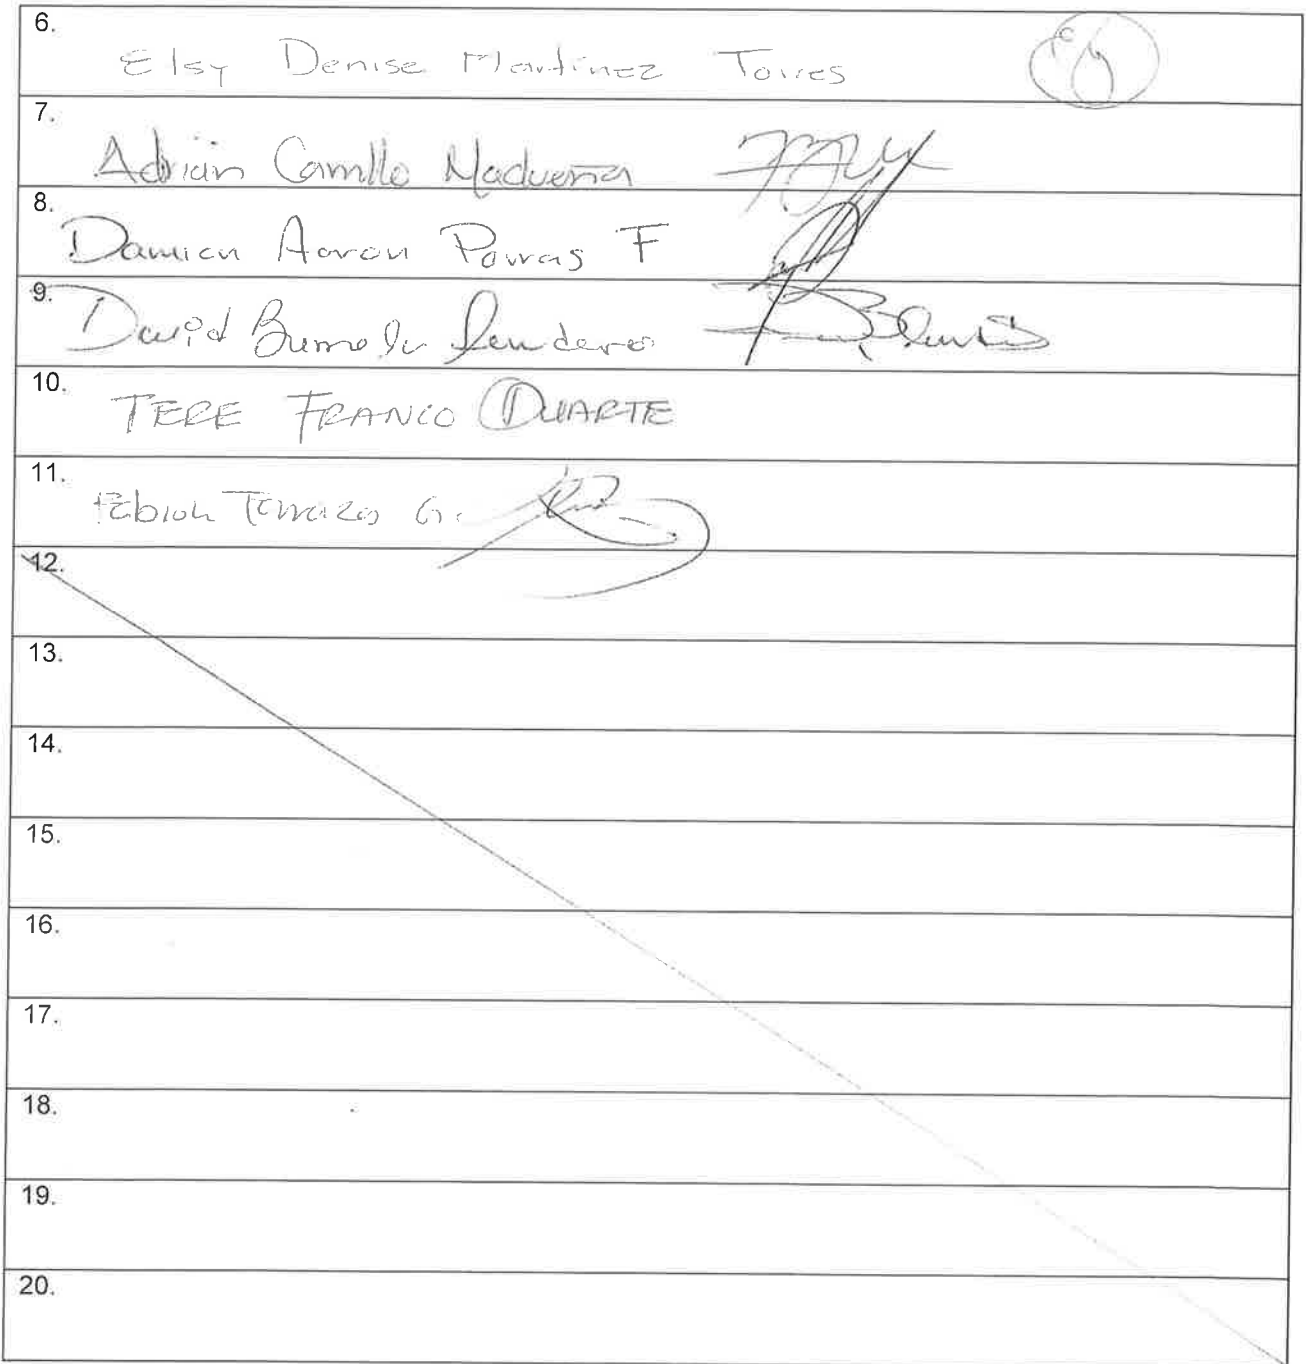 6.
Elsy Denise Martinez Torres
7.
Adrián Carrillo Madueña
8.
Damian Aaron Porras F
9.
David
10.
TERE FRANCO DUARTE
11.
Fabian Terrazas G.
12.
13.
14.
15.
16.
17.
18.
19.
20.